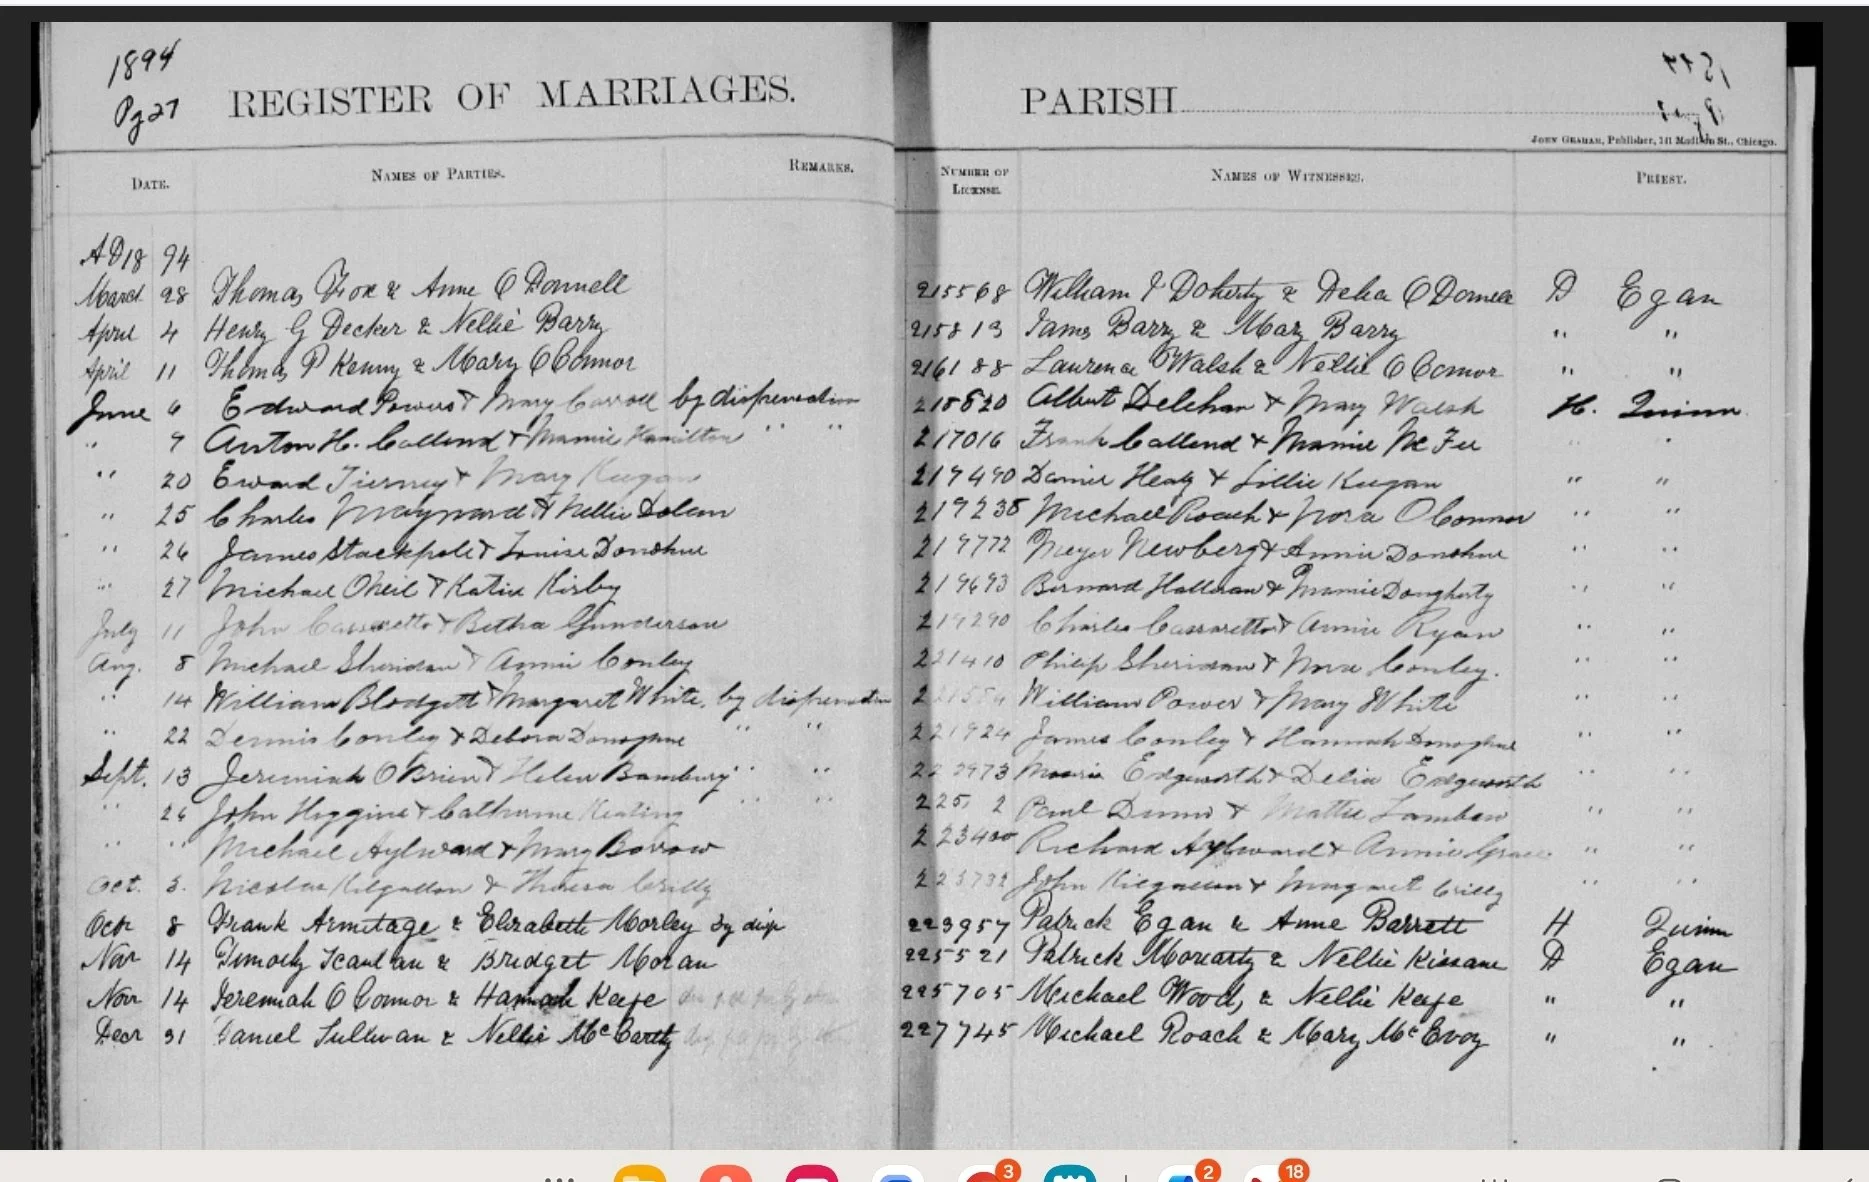 1894
Pg 27
REGISTER OF MARRIAGES.
PARISH
JOHN GRAHAM, Publisher, 141 Madison St., Chicago.
DATE. NAMES OF PARTIES. REMARKS. NUMBER OF LICENSE. NAMES OF WITNESSES. PRIEST.
AD18 94
March 28 Thomas Fox & Anne O Donnell 215568 William J Doherty & Delia O Donnell D Egan
April 4 Henry G Decker & Nellie Barry 215813 James Barry & Mary Barry " "
April 11 Thomas P Kenny & Mary O Connor 216188 Laurence Walsh & Nellie O Connor " "
June 6 Edward Powers & Mary Carroll by dispensation 218820 Albert Delehan & Mary Walsh H. Quinn
" 7 Anton H. Callend & Mamie Hamilton " " 217016 Frank Callend & Mamie McFee " "
" 20 Eward Tierney & Mary Keegan 219490 Daniel Healy & Lillie Keegan " "
" 25 Charles Maynard & Nellie Dolan 219238 Michael Roach & Nora O Connor " "
" 26 James Stackpole & Louise Donohue 219772 Meyer Newberg & Annie Donohue " "
" 27 Michael Oneil & Katie Kirby 219693 Bernard & Mamie Dougherty " "
July 11 John Cassaretto & Betha Gunderson 219290 Charles Cassaretto & Annie Ryan " "
Aug. 8 Michael Sheridan & Annie Conley 221410 Philip Sheridan & Nora Conley. " "
" 14 William Blodgett & Margaret White, by dispensation William Power & Mary White " "
" 22 Dennis Conley & Debora Donoghue " " 221924 James Conley & Hannah Donoghue " "
Sept. 13 Jeremiah O Brien & Helen Bambury " " 222973 Edgeworth & Delia Edgeworth " "
" 26 John Higgins & Catherine Keating " " Paul Dunne & Mattie " "
" " Michael Aylward & Mary Barrow 223400 Richard Aylward & Annie Grace " "
Oct. 3. Nicolas Kilgallon & Theresa Crilly 223732 John Kilgallon & Margaret Crilly " "
Octr 8 Frank Armitage & Elizabeth Morley by disp 223957 Patrick Egan & Anne Barrett H Quinn
Novr 14 Timothy Scanlan & Bridget Moran 225521 Patrick Moriarty & Nellie Kissane D Egan
Novr 14 Jeremiah O Connor & Hannah Keefe 225705 Michael Wood, & Nellie Keefe " "
Decr 31 Daniel Sullivan & Nellie McCarthy 227745 Michael Roach & Mary McEvoy " "
3 2 18